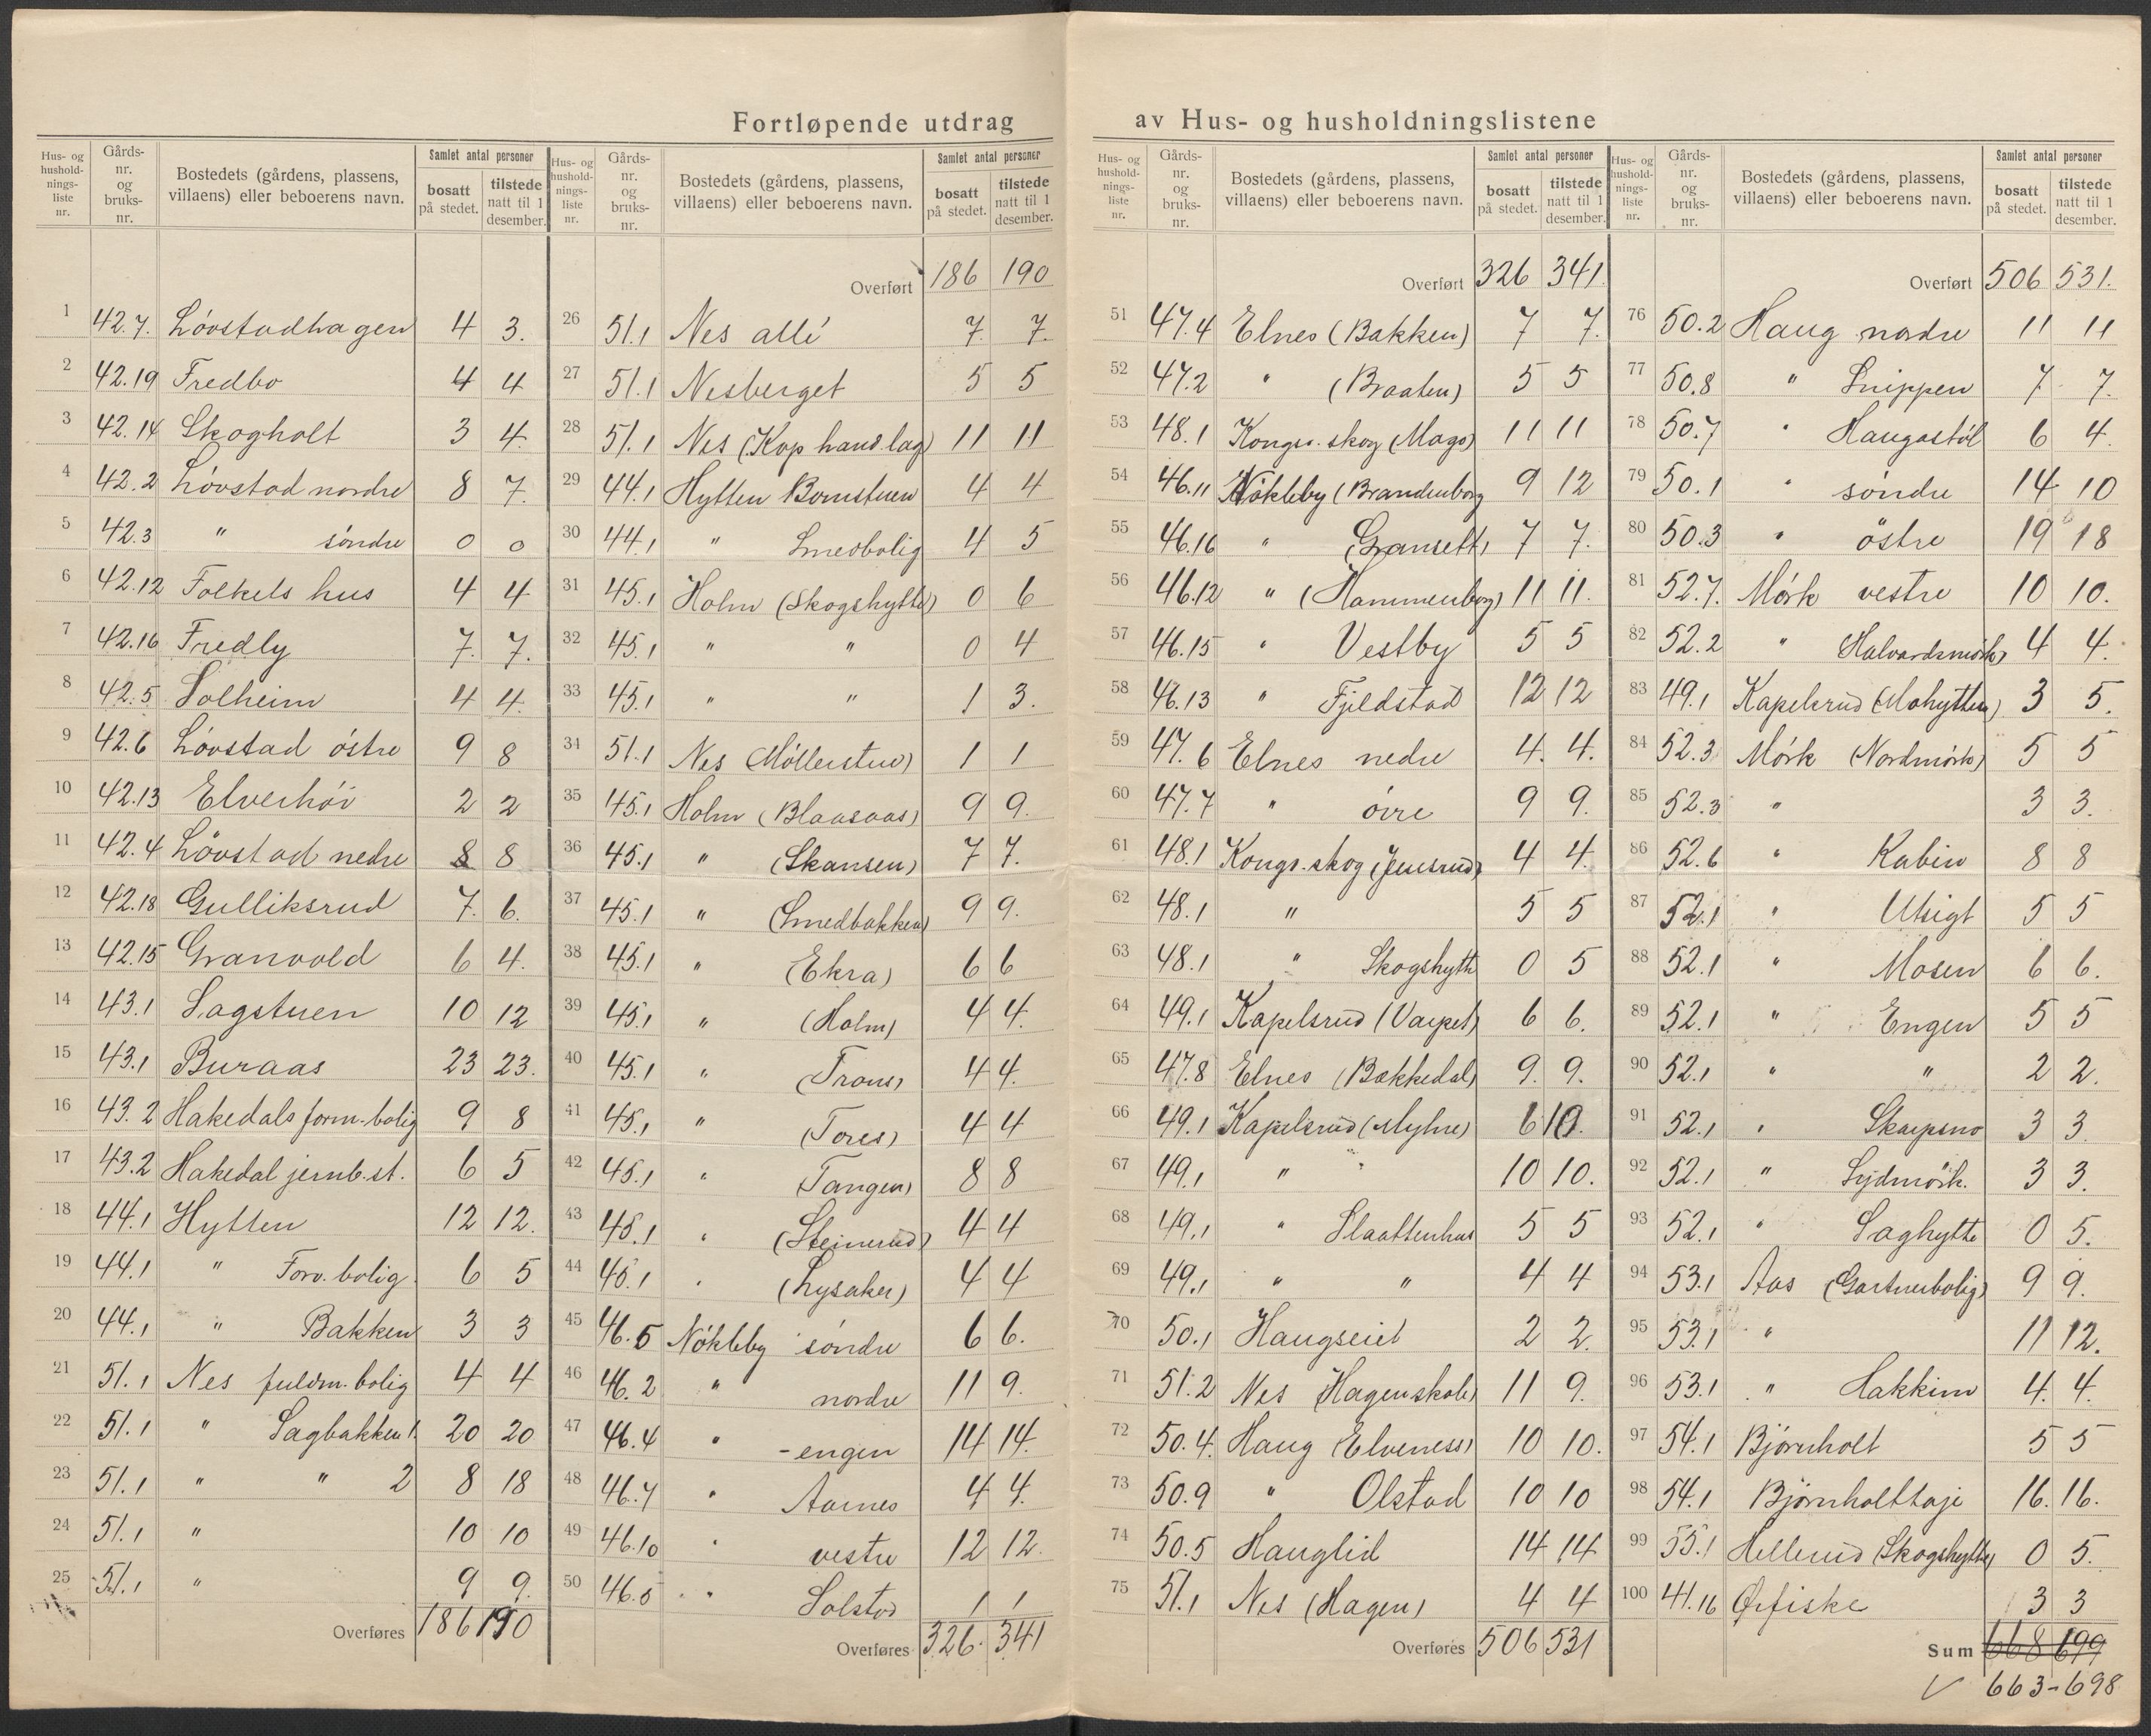 Fortløpende utdrag av Hus- og husholdningslistene
Hus- og hushold-nings-liste nr. | Gårds-nr. og bruks-nr. | Bostedets (gårdens, plassens, villaens) eller beboerens navn. | Samlet antal personer | bosatt på stedet. | tilstede natt til 1 desember.
1 42.7. Løvstadhagen 4 3.
2 42.19 Fredbo 4 4
3 42.14 Skogholt 3 4.
4 42.2 Løvstad nordre 8 7.
5 42.3 " søndre 0 0
6 42.12 Folkets hus 4 4
7 42.16 Fredly 7. 7.
8 42.5 Solheim 4 4.
9 42.6 Løvstad østre 9 8
10 42.13 Elverhöi 2 2
11 42.4 Løvstad nedre 8 8
12 42.18 Gulliksrud 7. 6.
13 42.15 Granvold 6 4.
14 43.1 Sagstuen 10 12
15 43.1 Buraas 23 23.
16 43.2 Hakedals form.bolig 9 8
17 43.2 Hakedal jernb.st. 6 5
18 44.1 Hytten 12 12.
19 44.1 " Forv. bolig 6 5
20 44.1 " Bakken 3 3
21 51.1 Nes fuldm. bolig 4 4
22 51.1 " Sagbakken 1. 20 20
23 51.1 " " 2 8 18
24 51.1 " 10 10
25 51.1 " 9 9.
Overføres 186 190
Hus- og hushold-nings-liste nr. | Gårds-nr. og bruks-nr. | Bostedets (gårdens, plassens, villaens) eller beboerens navn. | Samlet antal personer | bosatt på stedet. | tilstede natt til 1 desember.
Overført 186 190
26 51.1 Nes allé 7. 7.
27 51.1 Nesberget 5 5
28 51.1 Nes (Kop hans lag) 11 11
29 44.1 Hytten Bomstuen 4 4
30 44.1 " Smedbolig 4 5
31 45.1 Holm (Skogshytte) 0 6
32 45.1 " " 0 4
33 45.1 " " 1 3.
34 51.1 Nes (Möllerstuo) 1 1
35 45.1 Holm (Blaasaas) 9 9.
36 45.1 " (Skansen) 7 7.
37 45.1 " (Smedbakken) 9 9.
38 45.1 " (Ekra) 6 6
39 45.1 " (Holm) 4 4.
40 45.1 " (Trons) 4 4.
41 45.1 " (Tores) 4 4
42 45.1 " (Tangen) 8 8
43 45.1 " (Steinerud) 4 4
44 45.1 " (Lysaker) 4 4
45 46.5 Nökleby søndre 6 6.
46 46.2 " nordre 11 9.
47 46.4 " -engen 14 14.
48 46.7 " Aarnes 4 4.
49 46.10 " vestre 12 12.
50 46.5 " Solstad 1 1
Overføres 326. 341
Hus- og hushold-nings-liste nr. | Gårds-nr. og bruks-nr. | Bostedets (gårdens, plassens, villaens) eller beboerens navn. | Samlet antal personer | bosatt på stedet. | tilstede natt til 1 desember.
Overført 326 341.
51 47.4 Elnes (Bakken) 7 7.
52 47.2 " (Braaten) 5 5
53 48.1 Kongs. skog (Mago) 11 11
54 46.11 Nökleby (Brandenborg 9 12
55 46.16 " (Gransett) 7 7.
56 46.12 " (Hammenborg) 11 11.
57 46.15 " Vestby 5 5
58 46.13 " Fjeldstad 12 12
59 47.6 Elnes nedre 4. 4.
60 47.7 " övre 9 9.
61 48.1 Kongs.skog (Jensrud) 4 4.
62 48.1 " 5 5
63 48.1 " Skogshytte 0 5
64 49.1 Kapelsrud (Varpet) 6 6.
65 47.8 Elnes (Bakkedal) 9. 9.
66 49.1 Kapelsrud (Myhre) 6 10.
67 49.1 " " 10 10.
68 49.1 " Slaattenhus 5 5
69 49.1 " " 4 4
70 50.1 Haugseiet 2 2.
71 51.2 Nes (Hagenskole) 11 9.
72 50.4. Haug (Elveness) 10 10.
73 50.9 " Olstad 10 10
74 50.5 Hauglid 14 14
75 51.1 Nes (Hagen) 4 4
Overføres 506 531
Hus- og hushold-nings-liste nr. | Gårds-nr. og bruks-nr. | Bostedets (gårdens, plassens, villaens) eller beboerens navn. | Samlet antal personer | bosatt på stedet. | tilstede natt til 1 desember.
Overført 506 531.
76 50.2 Haug nordre 11 11
77 50.8 " Snippen 7 7.
78 50.7 " Haugastöl 6 4.
79 50.1 " søndre 14 10
80 50.3 " östre 19 18
81 52.7. Mörk vestre 10 10.
82 52.2 " Halvardsmörk) 4 4.
83 49.1 Kapelsrud (Mohytten) 3 5.
84 52.3 Mörk (Nordmörk) 5 5
85 52.3 " 3 3.
86 52.6 " Kabin 8 8
87 52.1 " Utsigt 5 5
88 52.1 " Mosen 6 6.
89 52.1 " Engen 5 5
90 52.1 " " 2 2.
91 52.1 " Skarpsno 3 3.
92 52.1 " Sydmörk. 3 3.
93 52.1 " Saghytte 0 5.
94 53.1 Aas (Gartnerbolig) 9 9.
95 53.1 " 11 12.
96 53.1 " Hakkim 4. 4.
97 54.1 Bjørnholt 5 5
98 54.1 Bjørnholttaje 16. 16.
99 55.1 Hellerud (Skogshytte) 0 5.
100 41.16 Ørfiske 3 3
Sum 668 699
✓ 663-698